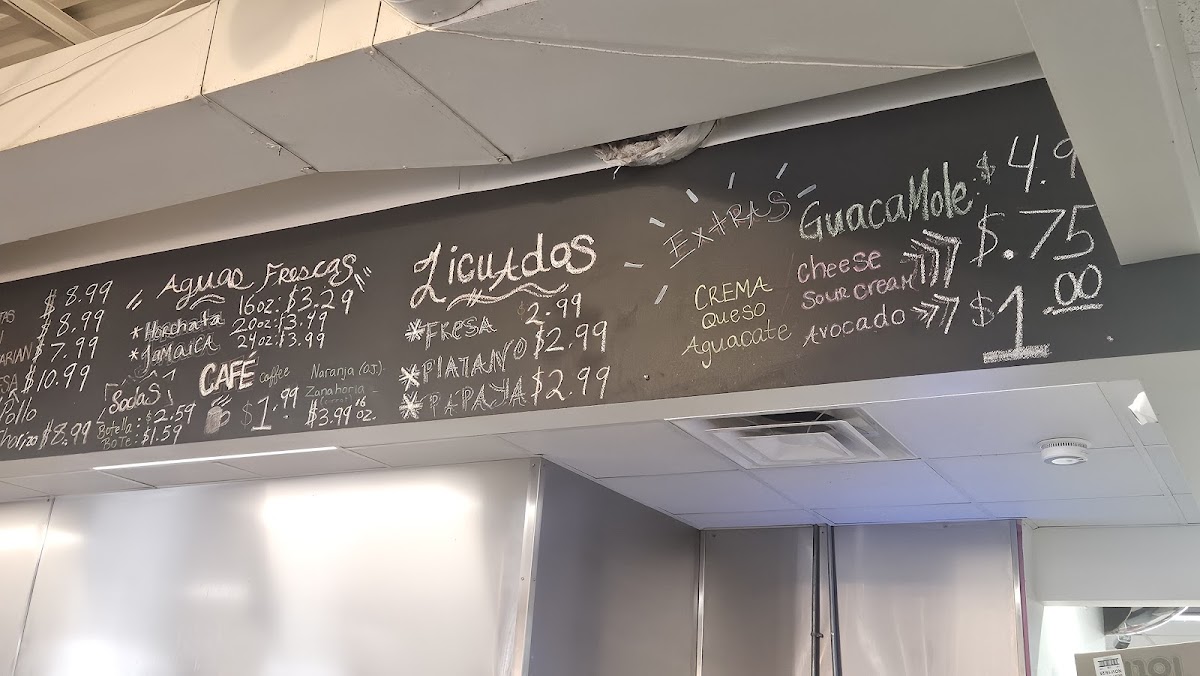 $8.99
$8.99
$7.99
$10.99
Pollo
$8.99
Aguas Frescas
16oz: $3.29
*Horchata 20oz: $3.49
*Jamaica 24oz: $3.99
Sodas
Botella: $2.59
Bote: $1.59
CAFÉ coffee
$1.99
Naranja (O.J.)
Zanahoria
$3.99 16 oz.
Licuados
*FRESA $2.99
*PlATANO $2.99
*PAPAYA $2.99
Extras
GuacaMole: $4.9
CREMA cheese
Queso Sour cream $.75
Aguacate Avocado $1.00